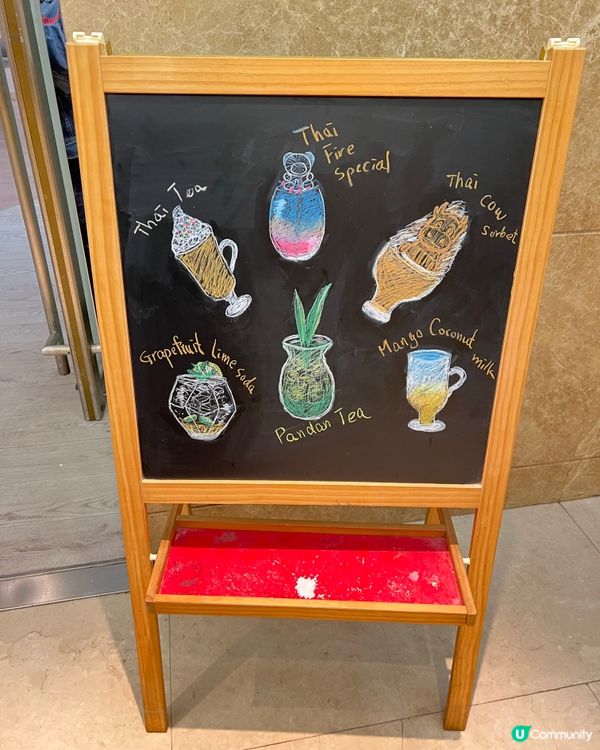 Thai
Fire
special
Thai Tea
Thai
Cow
sorbet
Grapefruit lime soda
Pandan Tea
Mango Coconut
milk
U Community